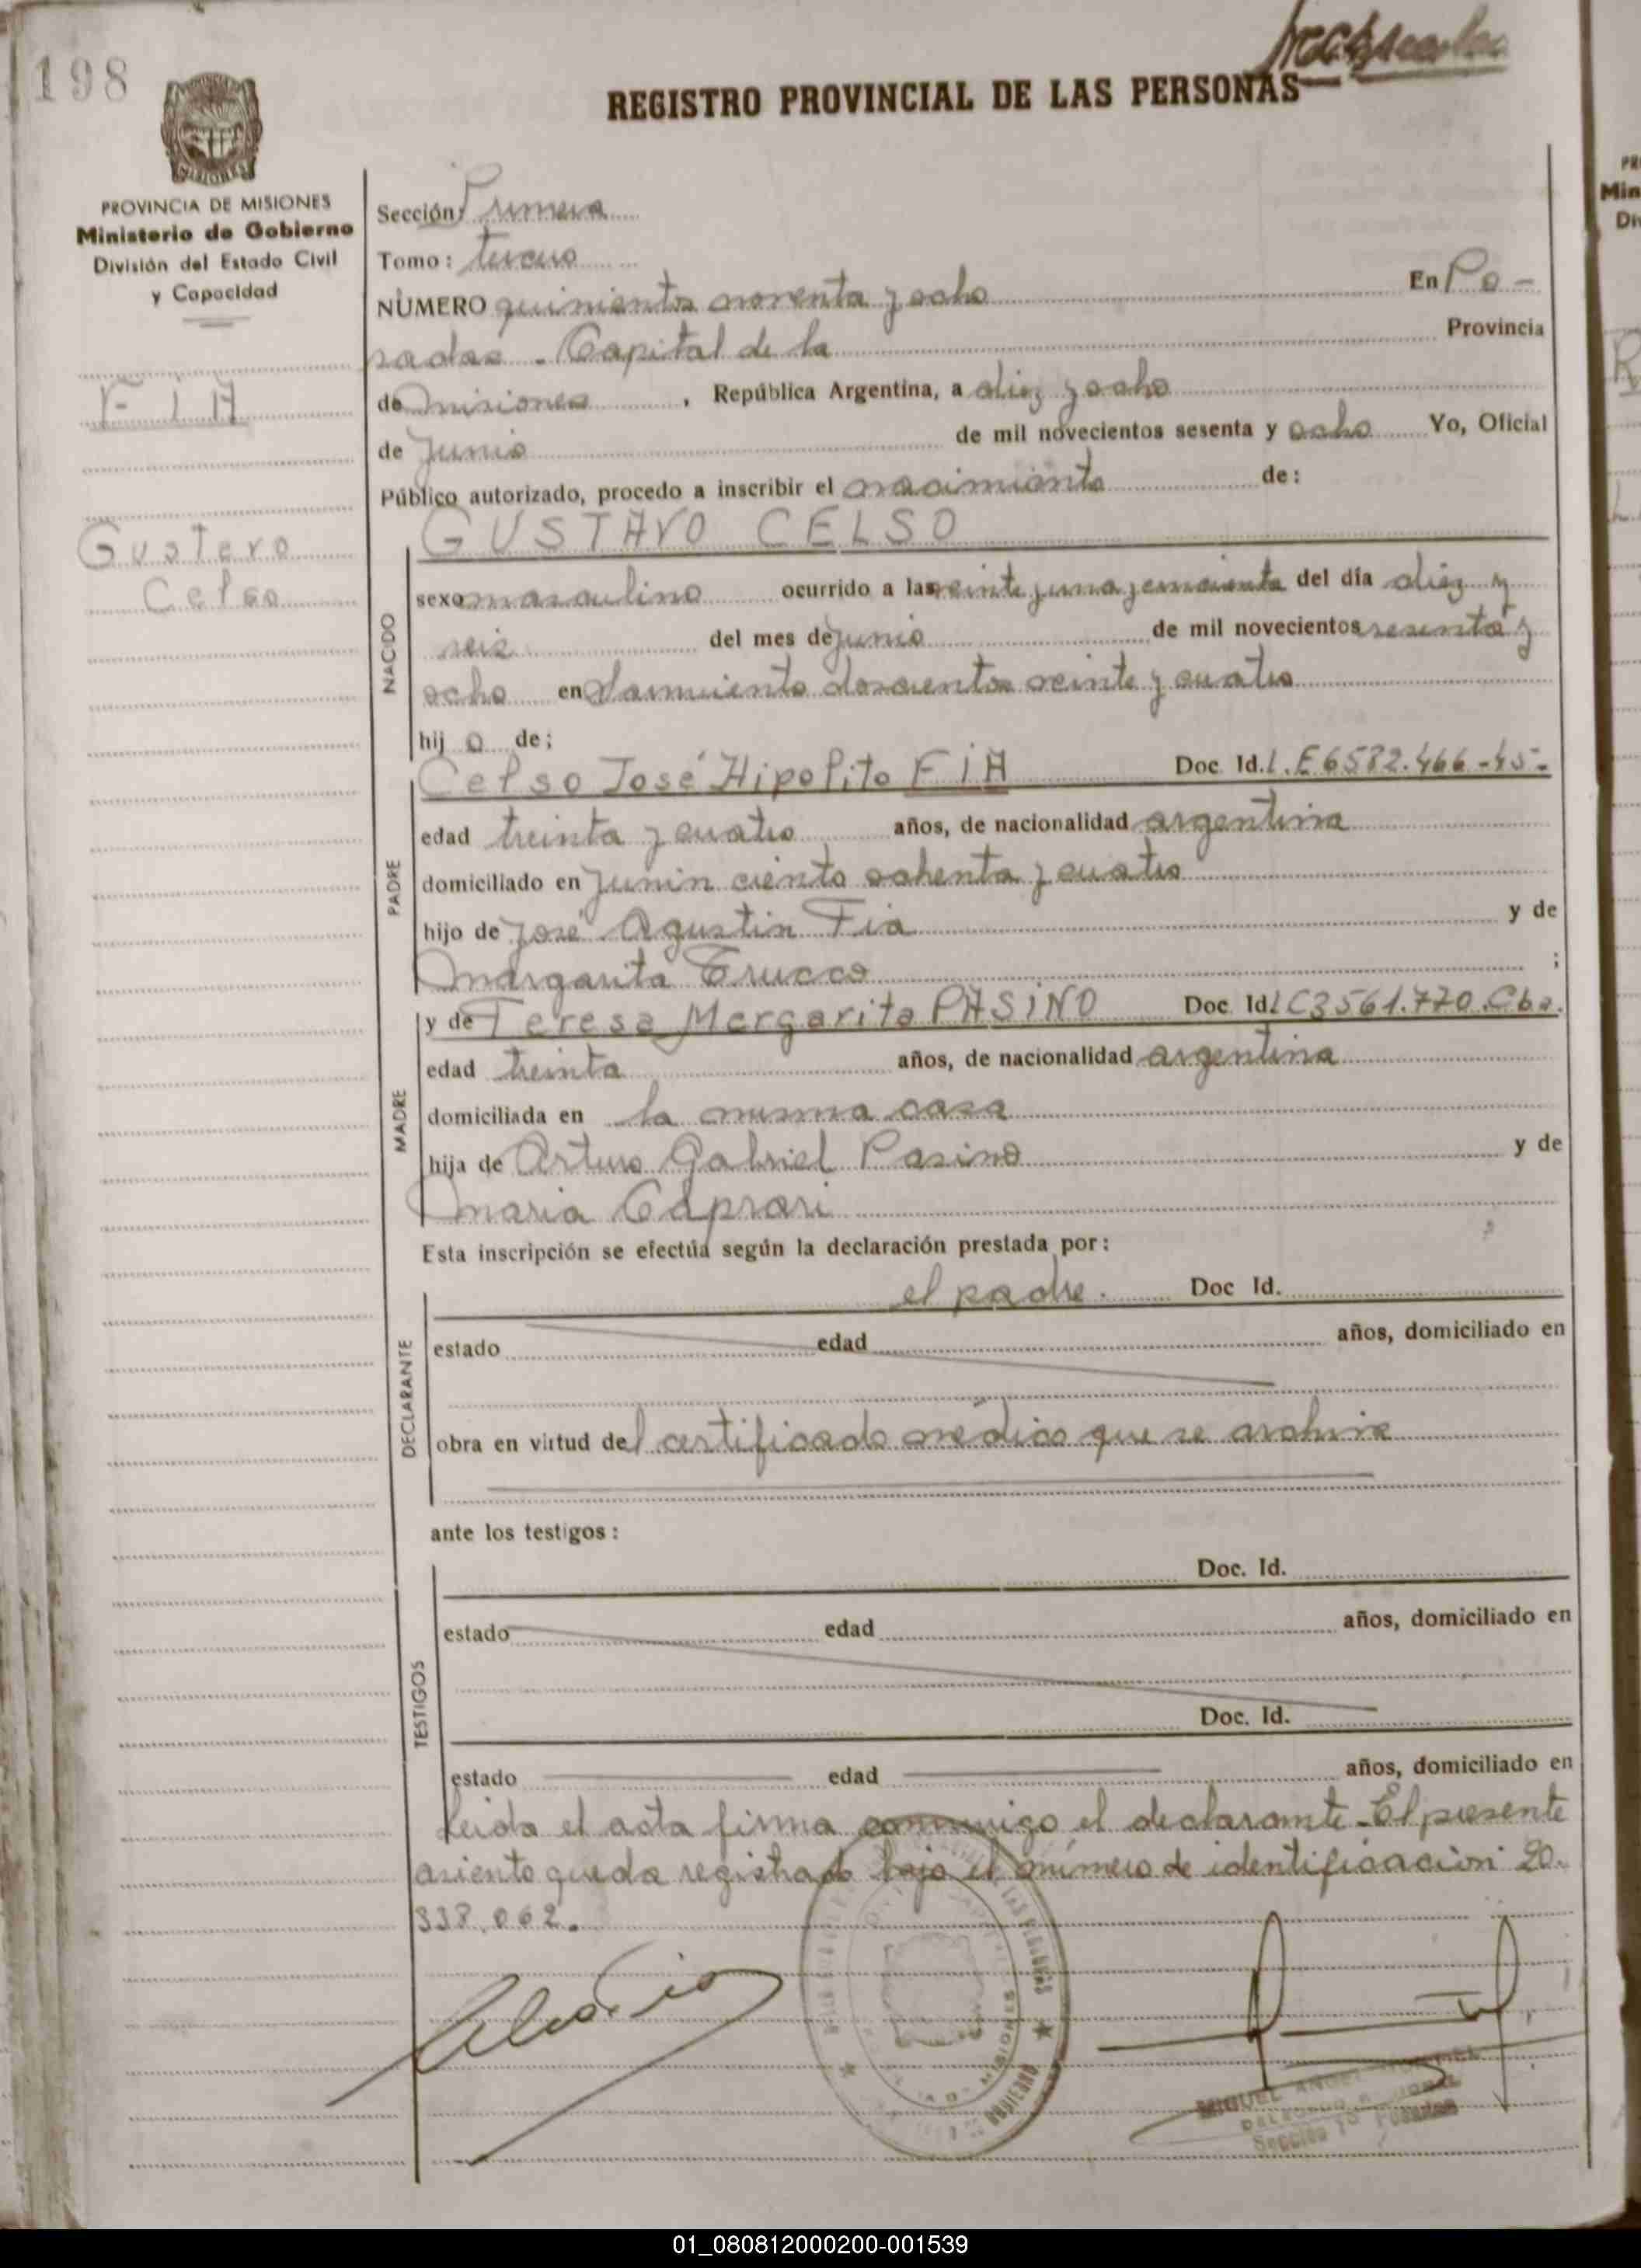 198
REGISTRO PROVINCIAL DE LAS PERSONAS
MISIONES
PROVINCIA DE MISIONES
Ministerio de Gobierno
División del Estado Civil
y Capacidad
FIA
Gustavo
Celso
Sección: Primera
Tomo: tercero
NÚMERO quinientos noventa y ocho En Po-
sadas - Capital de la Provincia
de Misiones, República Argentina, a diez y ocho
de Junio de mil novecientos sesenta y ocho Yo, Oficial
Público autorizado, procedo a inscribir el nacimiento de:
GUSTAVO CELSO
NACIDO
sexo masculino ocurrido a las veinte y una y cincuenta del día diez y
seis del mes de junio de mil novecientos sesenta y
ocho en Sarmiento doscientos veinte y cuatro
hij o de;
PADRE
Celso José Hipolito FIA Doc Id. L.E 6582.466-45-
edad treinta y cuatro años, de nacionalidad argentina
domiciliado en Junin ciento ochenta y cuatro
hijo de José Agustin Fia y de
Margarita Trucco ;
MADRE
y de Teresa Margarita PASINO Doc Id LC3561.770.Cba.
edad treinta años, de nacionalidad argentina
domiciliada en la misma casa
hija de Arturo Gabriel Pasino y de
Maria Caprari
Esta inscripción se efectúa según la declaración prestada por:
DECLARANTE
el padre. Doc Id.
estado edad años, domiciliado en
obra en virtud del certificado médico que se archiva
ante los testigos:
TESTIGOS
Doc. Id.
estado edad años, domiciliado en
Doc. Id.
estado edad años, domiciliado en
Leida el acta firma conmigo el declarante - El presente
asiento queda registrado bajo el número de identificación 20.
338.062.
MISIONES
GOBIERNO
MIGUEL ANGEL
Sección 1a Posadas
01_080812000200-001539